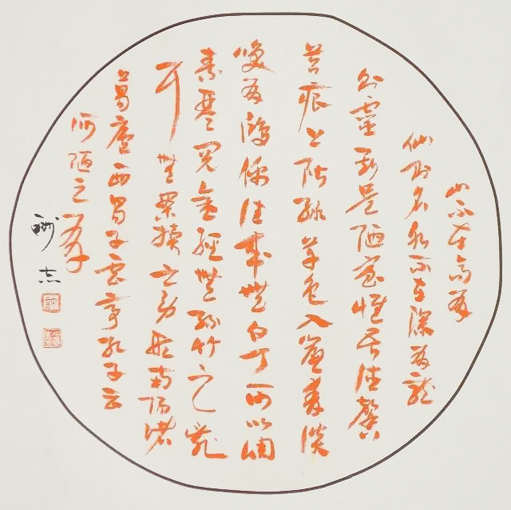 山不在高有
仙則名水不在深有龍
則靈斯是陋室惟吾德馨
苔痕上階綠草色入簾青談
咲有鴻儒往來無白丁可以調
素琴閱金經無絲竹之亂
耳無案牘之勞形南陽諸
葛廬西蜀子雲亭孔子云
何陋之有
志